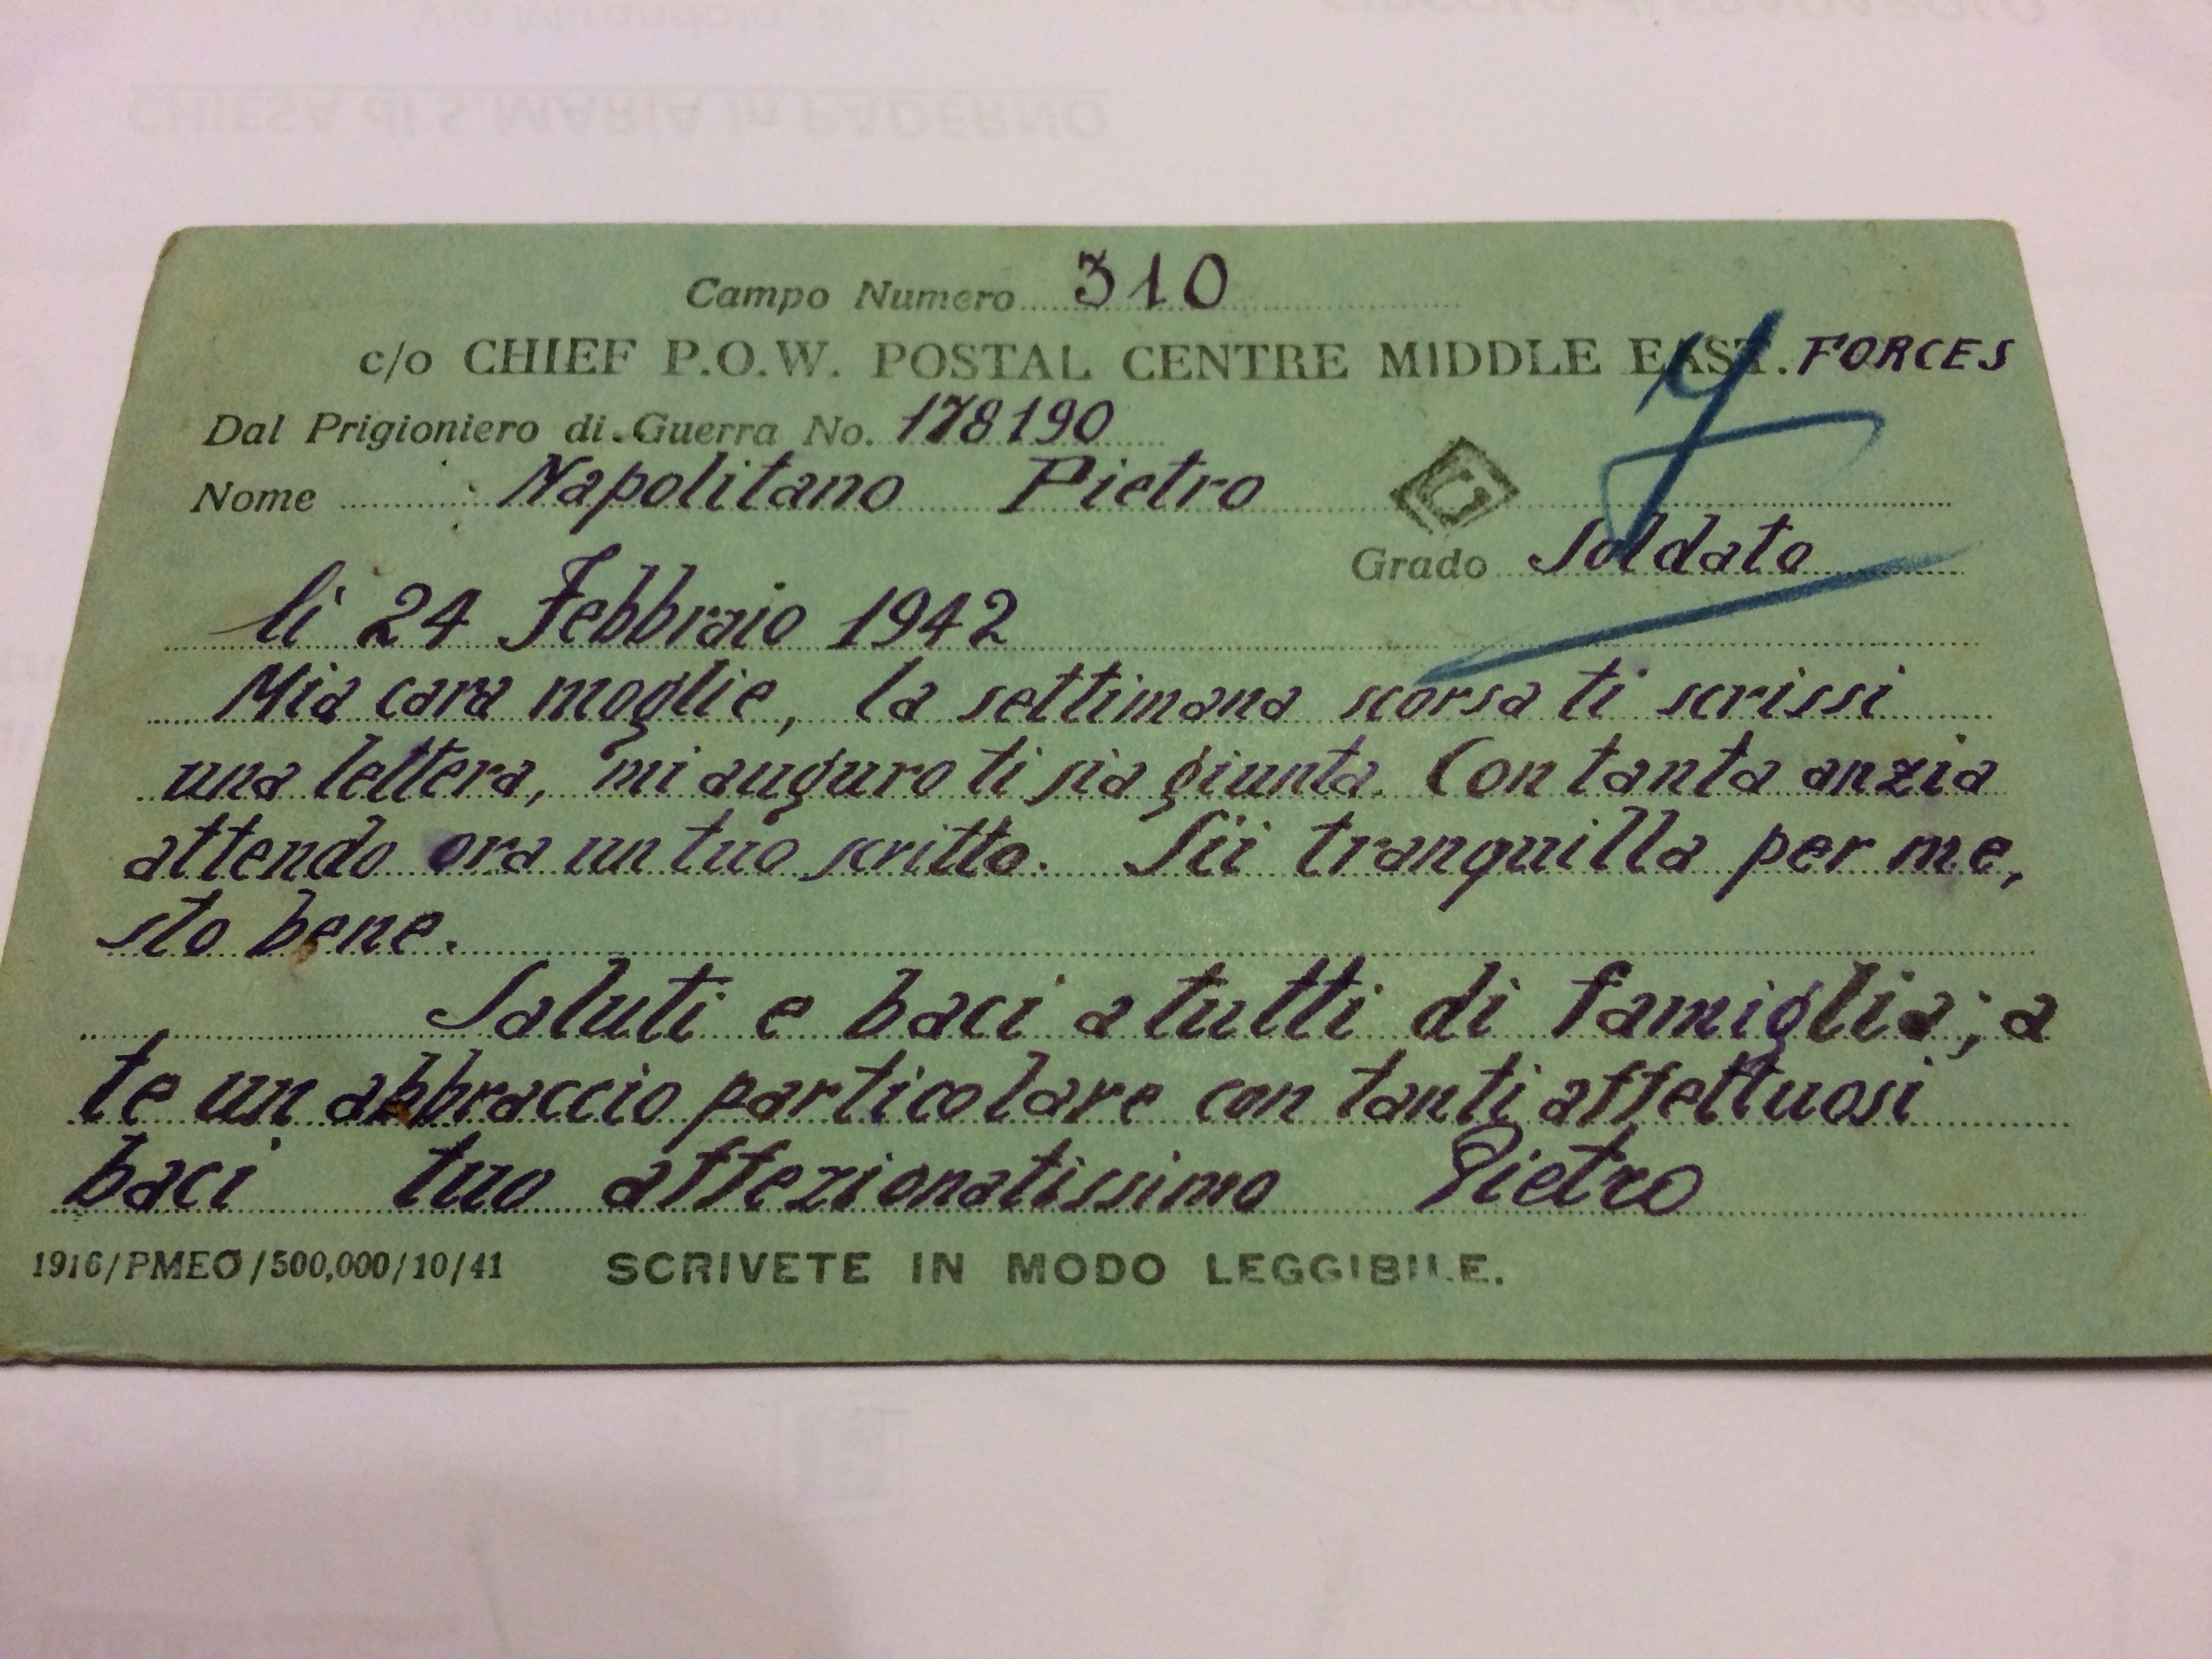 Campo Numero 310
c/o CHIEF P.O.W. POSTAL CENTRE MIDDLE EAST. FORCES
Dal Prigioniero di Guerra No. 178190
Nome Napolitano Pietro
Grado Soldato
li 24 Febbraio 1942
Mia cara moglie, la settimana scorsa ti scrissi
una lettera, mi auguro ti sia giunta. Con tanta anzia
attendo ora un tuo scritto. Sii tranquilla per me,
sto bene.
Saluti e baci a tutti di famiglia; a
te un abbraccio particolare con tanti affettuosi
baci tuo affezionatissimo Pietro
1916/PMEO/500,000/10/41 SCRIVETE IN MODO LEGGIBILE.